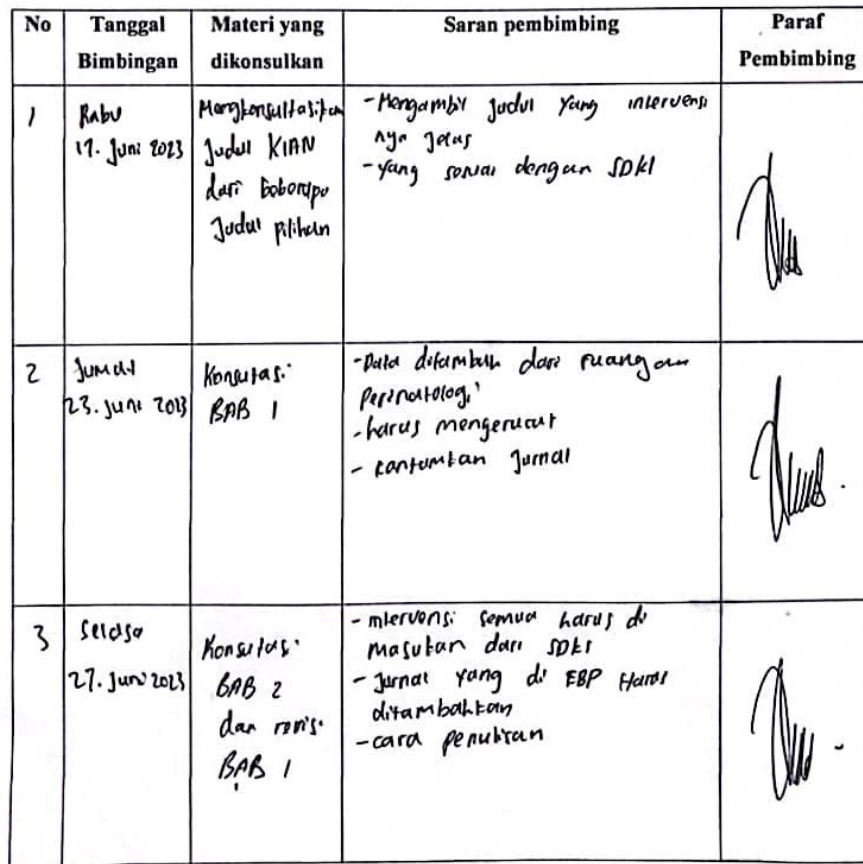 No Tanggal Bimbingan Materi yang dikonsulkan Saran pembimbing Paraf Pembimbing
1
Rabu
17. Juni 2023
Mengkonsultasikan
Judul KIAN
dari beberapa
Judul Pilihan
- Mengambil Judul yang intervensi
nya jelas
- yang sesuai dengan SDKI
2
Jumat
23. Juni 2023
Konsultasi
BAB 1
- Data ditambah dari ruangan
Perinatologi
- harus mengerucut
- cantumkan Jurnal
3
Selasa
27. Juni 2023
Konsultasi
BAB 2
dan revisi
BAB 1
- intervensi semua harus di
masukan dari SDKI
- Jurnal yang di EBP Harus
ditambahkan
- cara penulisan